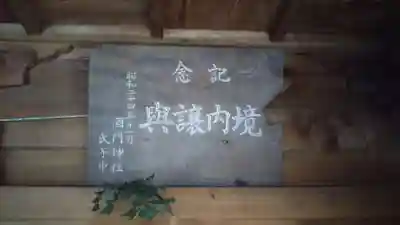 記念
境内譲與
昭和二十四年十一月
西門神社
氏子中